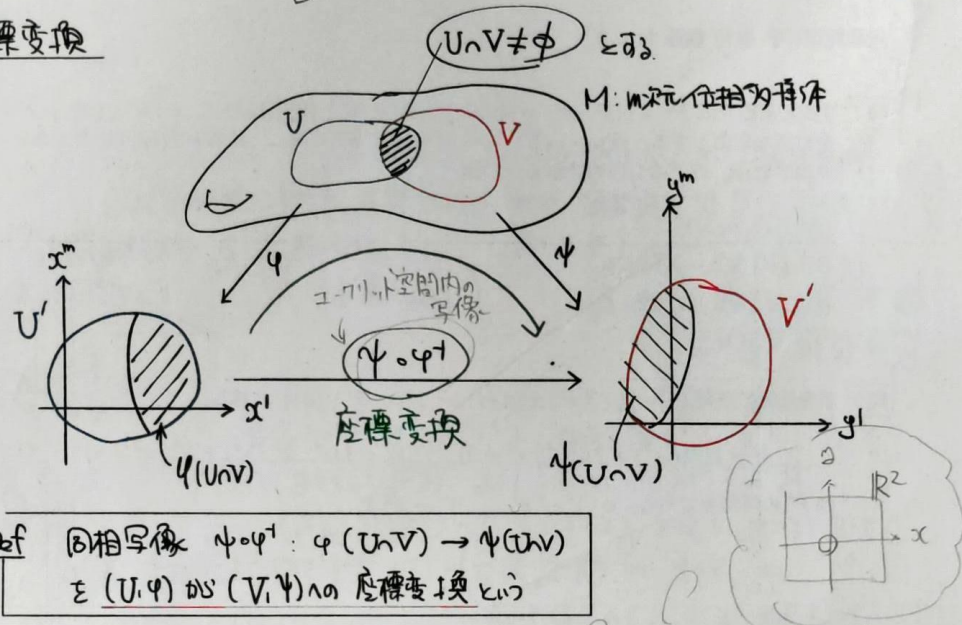 標変換
U∩V≠φ とする
M:m次元位相多様体
U
V
φ
ψ
x^m
y^m
ユークリッド空間内の
写像
U'
V'
ψ∘φ⁻¹
x¹
y¹
座標変換
φ(U∩V)
ψ(U∩V)
ℝ²
x
ef 同相写像 ψ∘φ⁻¹: φ(U∩V)→ψ(U∩V)
を (U,φ)から(V,ψ)への座標変換という